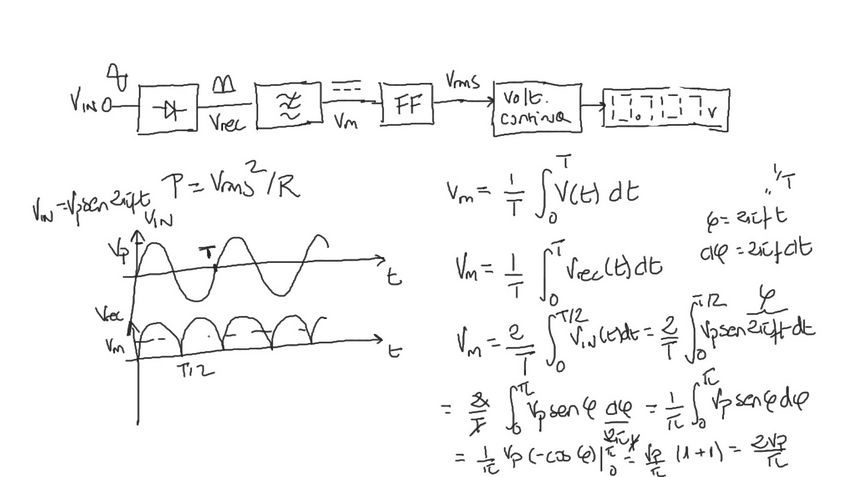 V_IN
V_rec
V_m
FF
V_rms
Volt. continua
V
V_IN = V_p sen 2πft
P = V_rms² / R
V_IN
V_p
T
t
V_rec
V_m
T/2
t
V_m = 1/T ∫₀^T V(t) dt
V_m = 1/T ∫₀^T V_rec(t) dt
V_m = 2/T ∫₀^{T/2} V_IN(t) dt = 2/T ∫₀^{T/2} V_p sen 2πft dt
φ
= 2/T ∫₀^π V_p sen φ dφ/2πf = 1/π ∫₀^π V_p sen φ dφ
= 1/π V_p (-cos φ)|₀^π = V_p/π (1+1) = 2V_p/π
1/T
φ = 2πft
dφ = 2πf dt